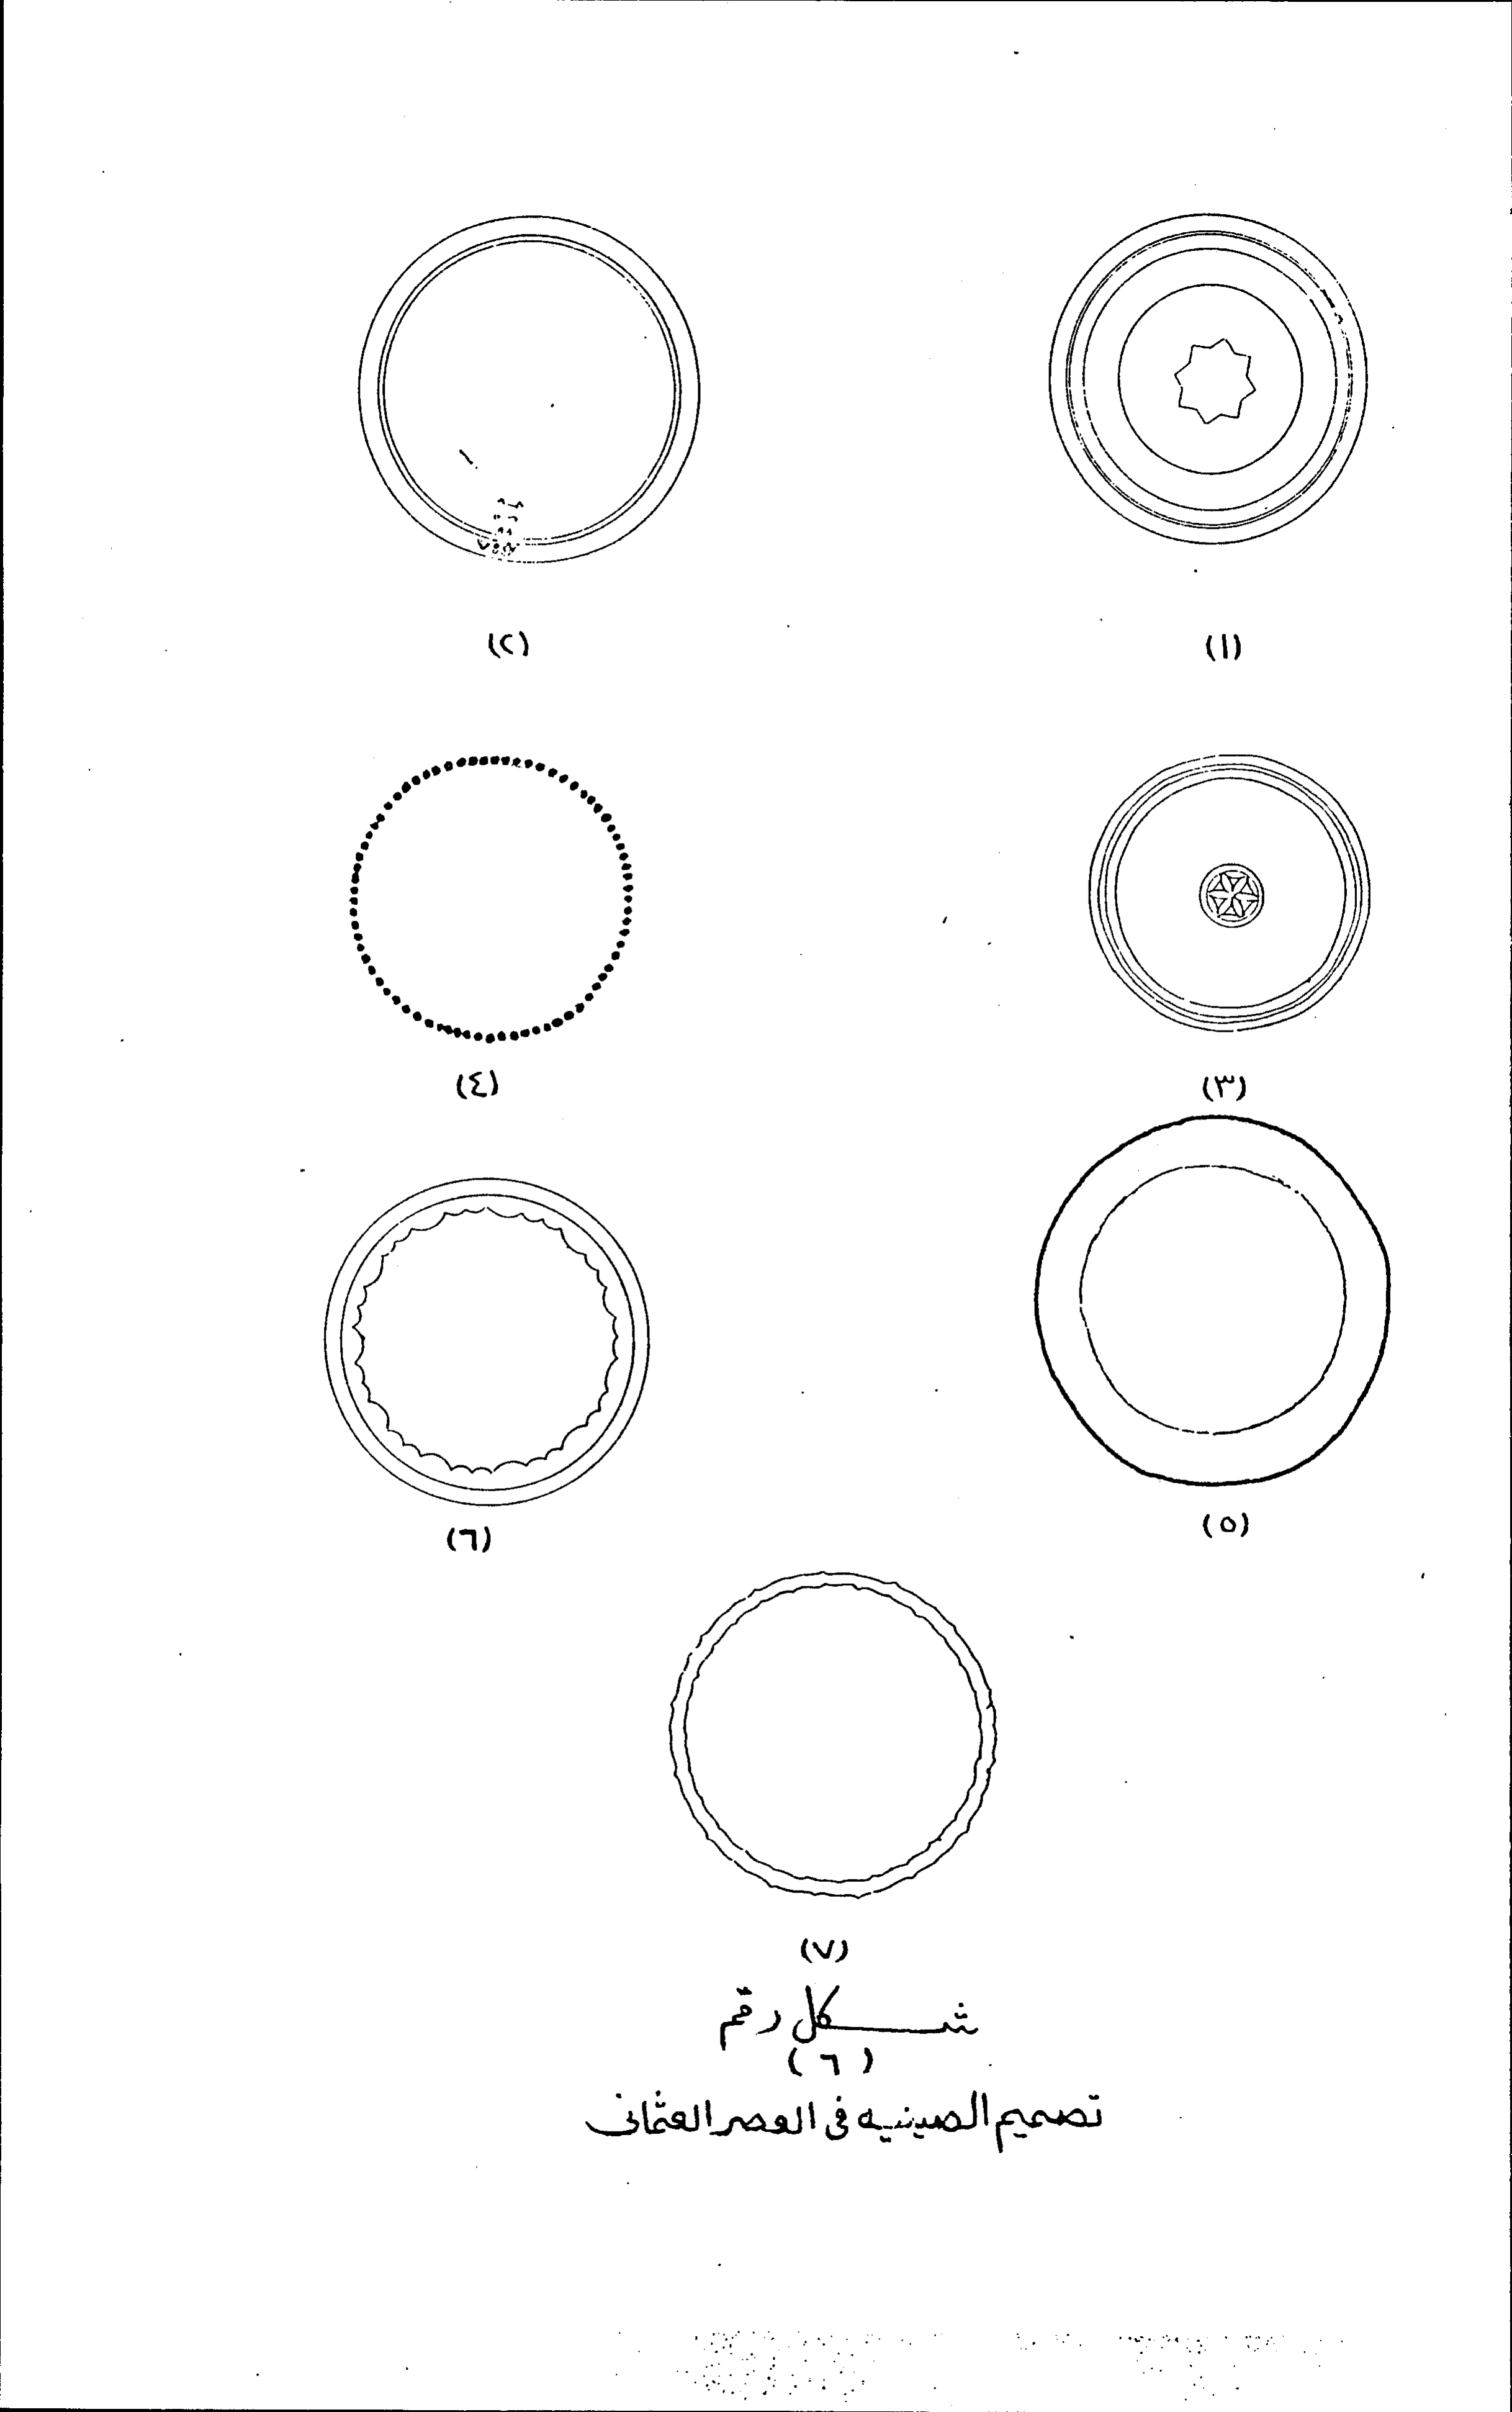 (١) (٢)
(٣) (٤)
(٥) (٦)
(٧)
شكل رقم
(٦)
تصميم الصينيه فى العصر العثمانى